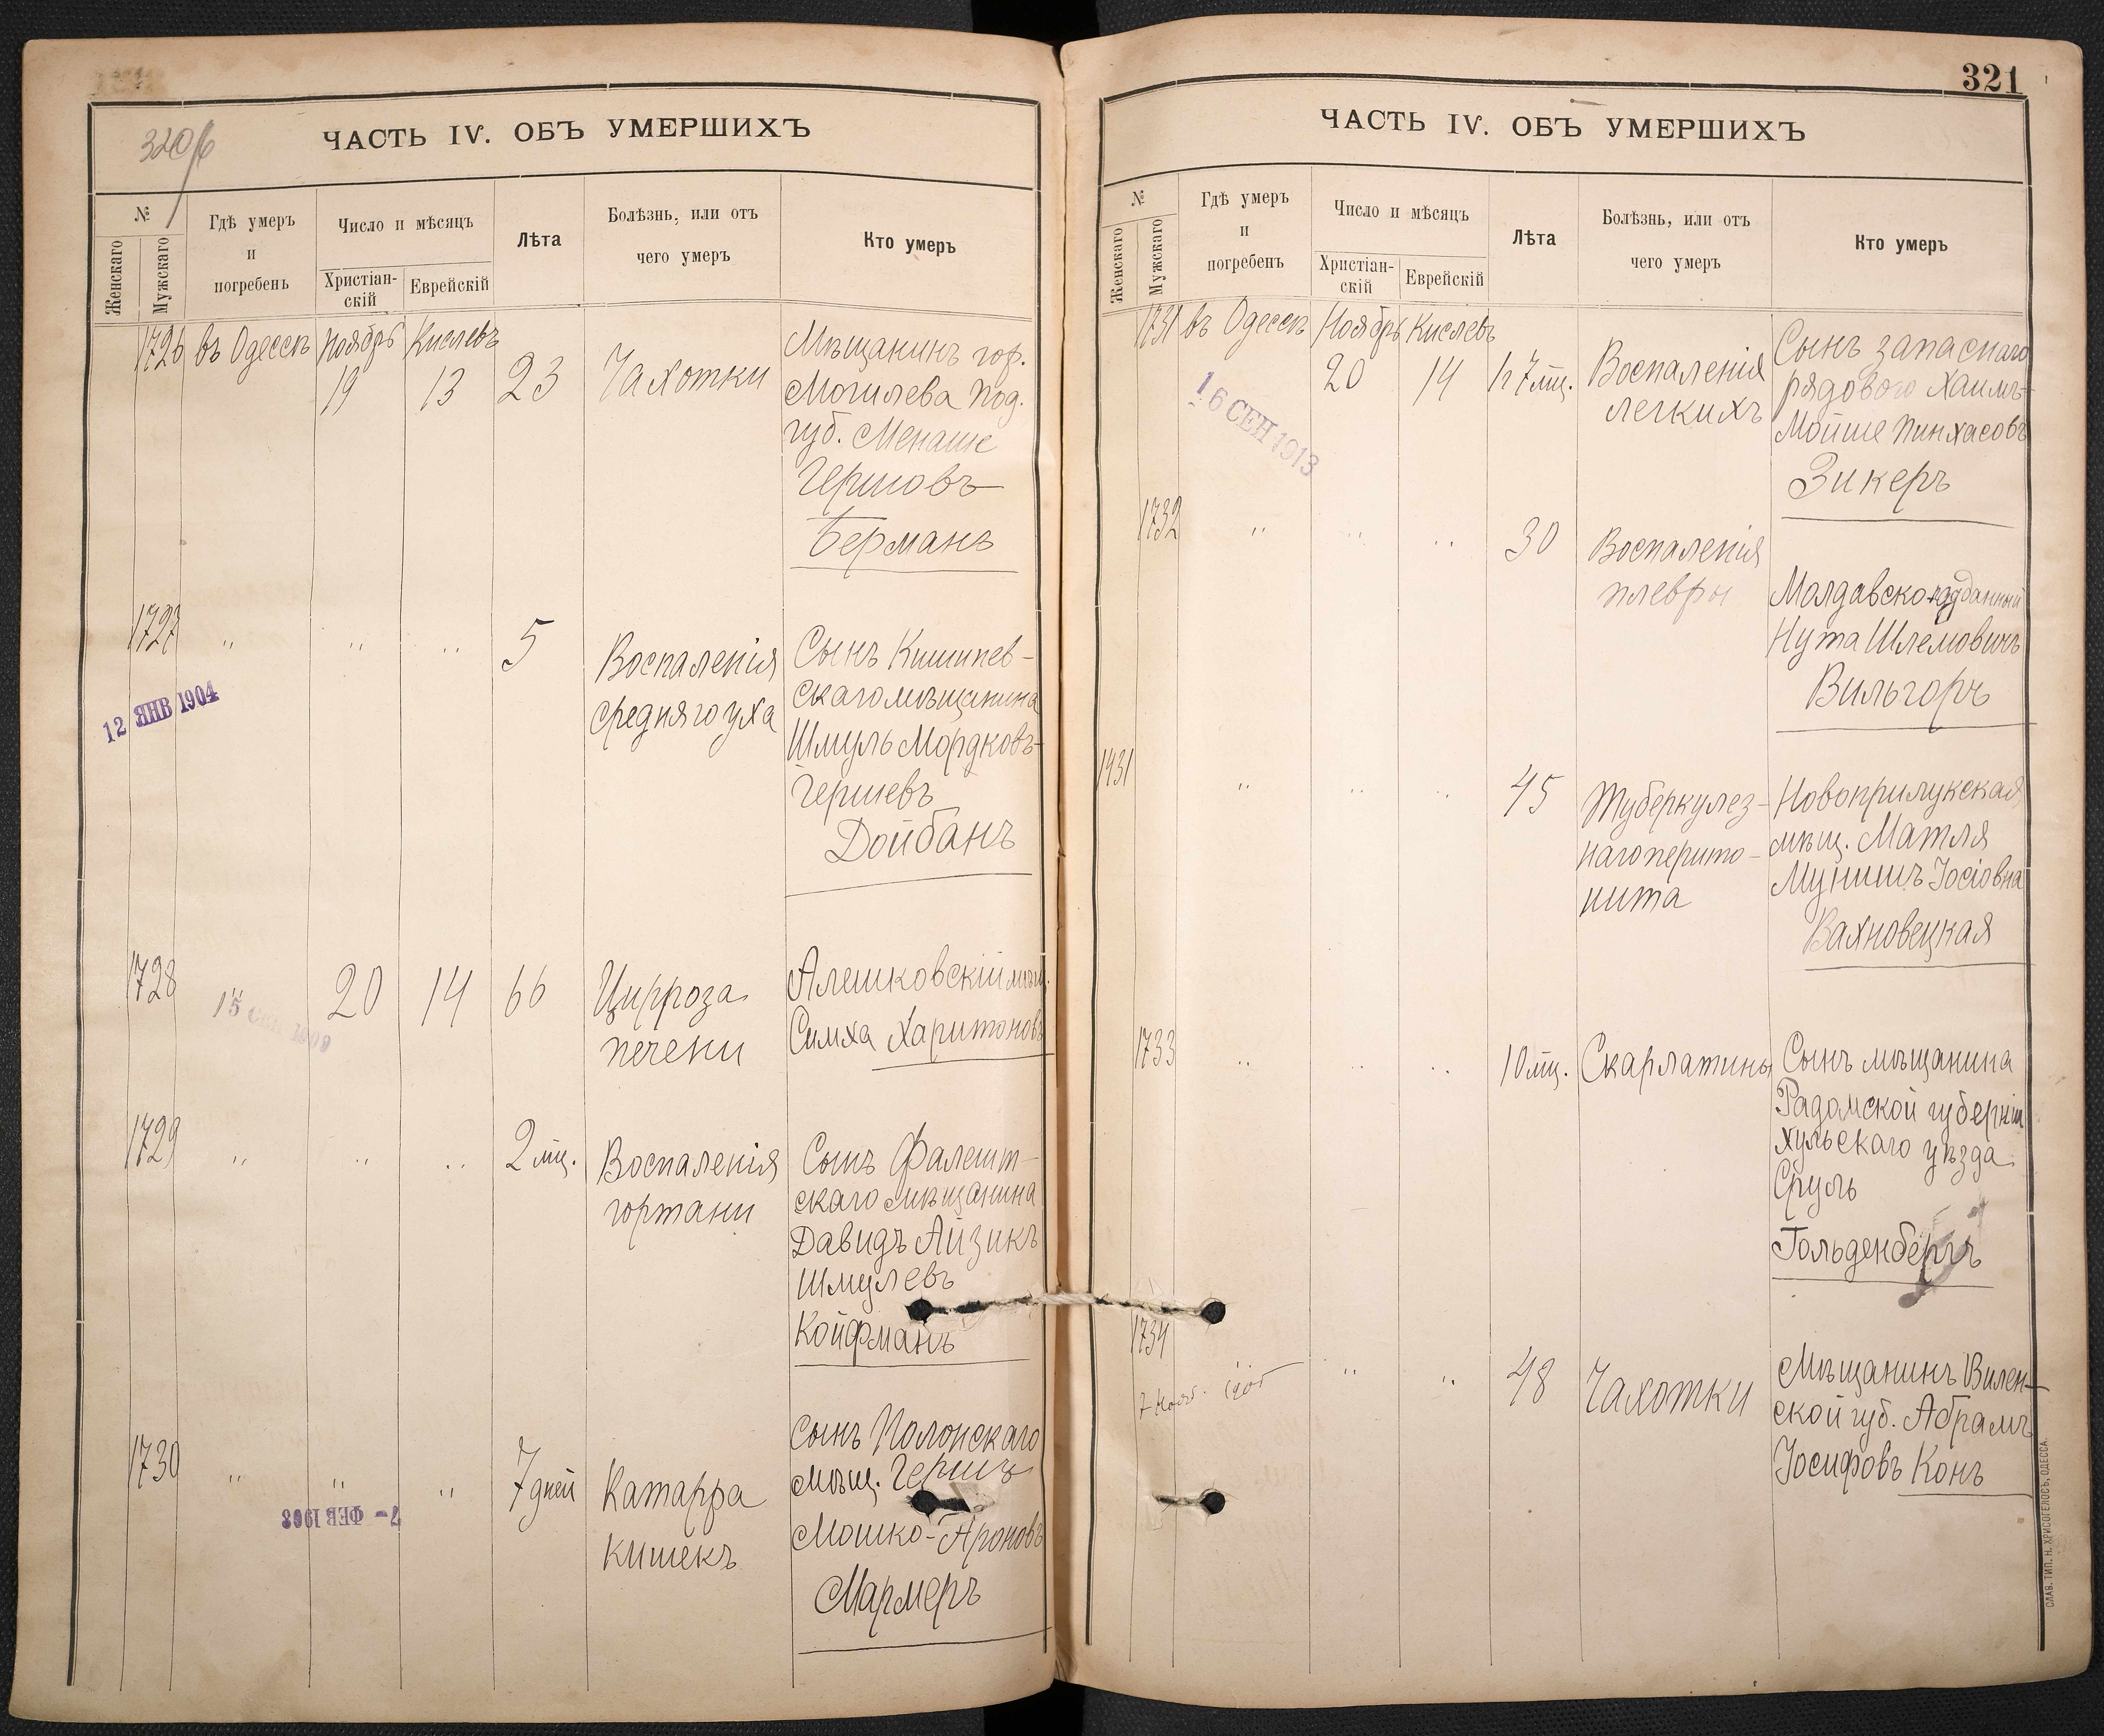 320/б
ЧАСТЬ IV. ОБЪ УМЕРШИХЪ
№
Женскаго
Мужскаго
Гдѣ умеръ
и
погребенъ
Число и мѣсяцъ
Христіан-
скій
Еврейскій
Лѣта
Болѣзнь, или отъ
чего умеръ
Кто умеръ
1726 въ Одессѣ Ноябрь Кислевъ
19 13 23 Чахотки
Мѣщанинъ гор.
Могилева Под.
губ. Менаше
Гершовъ
Берманъ
1727 " " " 5
Воспаленія
средняго уха
Сынъ Кишинев-
скаго мѣщанина
Шмуль Мордковъ-
Гершевъ
Дойбанъ
12 ЯНВ 1904
1728 " 20 14 66
Цирроза
печени
Алешковскій мѣщ.
Симха Харитоновъ
1729 " " " 2 мц.
Воспаленія
гортани
Сынъ Фалешт-
скаго мѣщанина
Давидъ Айзикъ
Шмулевъ
Койфманъ
1730 " " " 7 дней
Катарра
кишекъ
Сынъ Полонскаго
мѣщ. Гершъ
Мошко-Ароновъ
Мармеръ
7- ФЕВ 1908
321
ЧАСТЬ IV. ОБЪ УМЕРШИХЪ
№
Женскаго
Мужскаго
Гдѣ умеръ
и
погребенъ
Число и мѣсяцъ
Христіан-
скій
Еврейскій
Лѣта
Болѣзнь, или отъ
чего умеръ
Кто умеръ
1731 въ Одессѣ Ноябрь Кислевъ
20 14 1 г 7 мц.
Воспаленія
легкихъ
Сынъ запаснаго
рядового Хаимъ-
Мойше Пинхасовъ
Зикеръ
16 СЕН 1913
1732 " " " 30
Воспаленія
плевры
Молдавско-подданный
Нута Шлемовичъ
Вильгоръ
1431 " " " 45
Туберкулез-
наго перито-
нита
Новоприлукская
мѣщ. Матля
Мунишъ Іосіовна
Вахновецкая
1733 " " " 10 мц. Скарлатины
Сынъ мѣщанина
Радомской губерніи
уѣзда
Сруль
Гольденбергъ
1734 " " " 48 Чахотки
Мѣщанинъ Вилен-
ской губ. Абрамъ
Іосифовъ Конъ
7 Нояб. 1905
СЛАВ. ТИП. Н. ХРИСОГЕЛОСЪ, ОДЕССА.